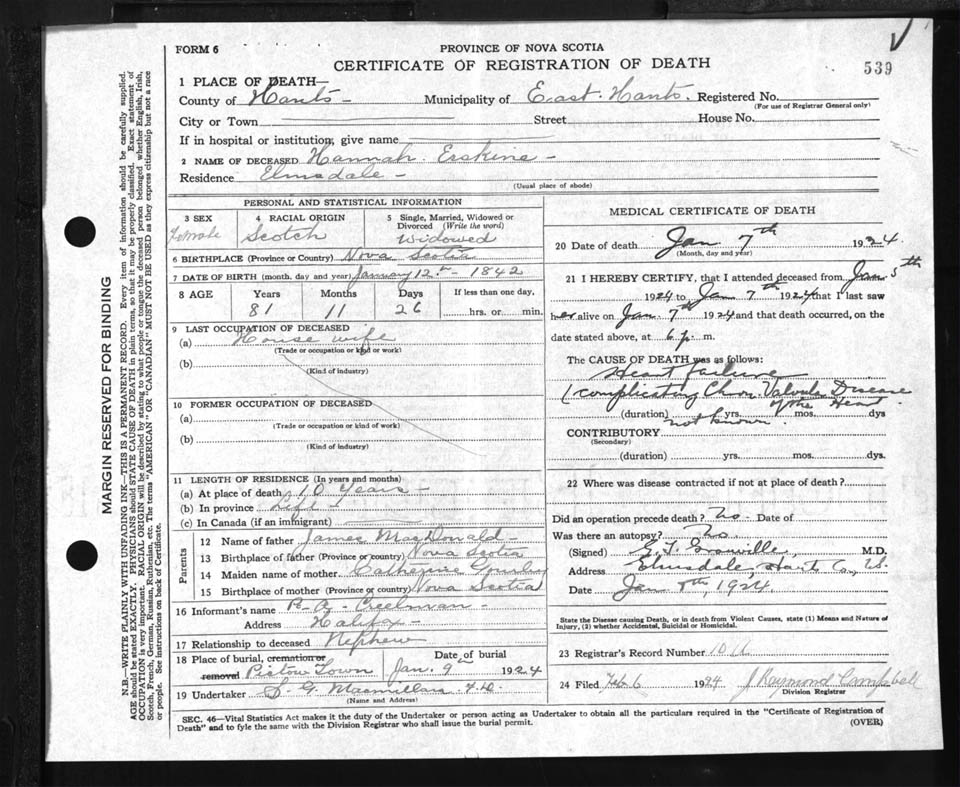 FORM 6
PROVINCE OF NOVA SCOTIA
CERTIFICATE OF REGISTRATION OF DEATH
539
1 PLACE OF DEATH—
County of Hants - Municipality of East. Hants. Registered No.
(For use of Registrar General only)
City or Town Street House No.
If in hospital or institution, give name
2 NAME OF DECEASED Hannah. Erskine -
Residence Elmsdale -
(Usual place of abode)
PERSONAL AND STATISTICAL INFORMATION
3 SEX
Female
4 RACIAL ORIGIN
Scotch
5 Single, Married, Widowed or
Divorced (Write the word)
Widowed
6 BIRTHPLACE (Province or Country) Nova Scotia
7 DATE OF BIRTH (month, day and year) January 12th - 1842
8 AGE
Years
81
Months
11
Days
26
If less than one day,
hrs. or min.
9 LAST OCCUPATION OF DECEASED
(a) House wife
(Trade or occupation or kind or work)
(b)
(Kind of industry)
10 FORMER OCCUPATION OF DECEASED
(a)
(Trade or occupation or kind of work)
(b)
(Kind of industry)
11 LENGTH OF RESIDENCE (In years and months)
(a) At place of death 10 Years -
(b) In province Life -
(c) In Canada (if an immigrant)
Parents
12 Name of father James MacDonald -
13 Birthplace of father (Province or country) Nova Scotia
14 Maiden name of mother Catherine
15 Birthplace of mother (Province or country) Nova Scotia
16 Informant's name R. A. Creelman -
Address Halifax -
17 Relationship to deceased Nephew
18 Place of burial, cremation or
removal Pictou Town
Date of burial
Jan. 9th 1924
19 Undertaker S. G. Macmillan
(Name and Address)
MEDICAL CERTIFICATE OF DEATH
20 Date of death Jan 7th 1924.
(Month, day and year)
21 I HEREBY CERTIFY, that I attended deceased from Jan 5th
1924 to Jan 7th 1924 that I last saw
her alive on Jan 7th 1924 and that death occurred, on the
date stated above, at 6 p. m.
The CAUSE OF DEATH was as follows:
Heart failure
(complicating Chron. Valvular Disease
of the Heart
(duration) yrs. mos. dys
not known.
CONTRIBUTORY
(Secondary)
(duration) yrs. mos. dys.
22 Where was disease contracted if not at place of death?
Did an operation precede death? No. Date of
Was there an autopsy? No
(Signed) M.D.
Address Elmsdale, Hants Co.,
Date Jan 8th, 1924.
State the Disease causing Death, or in death from Violent Causes, state (1) Means and Nature of
Injury, (2) whether Accidental, Suicidal or Homicidal.
23 Registrar's Record Number
24 Filed Feb 6 1924 J Raymond Campbell
Division Registrar
SEC. 46—Vital Statistics Act makes it the duty of the Undertaker or person acting as Undertaker to obtain all the particulars required in the "Certificate of Registration of
Death" and to fyle the same with the Division Registrar who shall issue the burial permit.
(OVER)
MARGIN RESERVED FOR BINDING
N.B.—WRITE PLAINLY WITH UNFADING INK—THIS IS A PERMANENT RECORD. Every item of information should be carefully supplied.
AGE should be stated EXACTLY. PHYSICIANS should STATE CAUSE OF DEATH in plain terms, so that it may be properly classified. Exact statement of
OCCUPATION is very important. RACIAL ORIGIN will be described by stating to what people or tongue the deceased person belonged whether English, Irish,
Scotch, French, German, Russian, Ruthenian, etc. The terms "AMERICAN" OR "CANADIAN" MUST NOT BE USED as they express citizenship but not a race
or people. See instructions on back of Certificate.